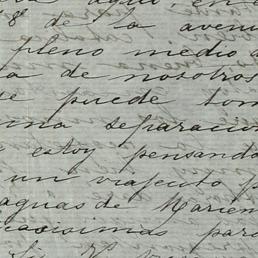 8 de la aveni
pleno medio
a de nosotros
se puede tom
una separacion
estoy pensando
un viajecito p
aguas de Marien
casisimas para